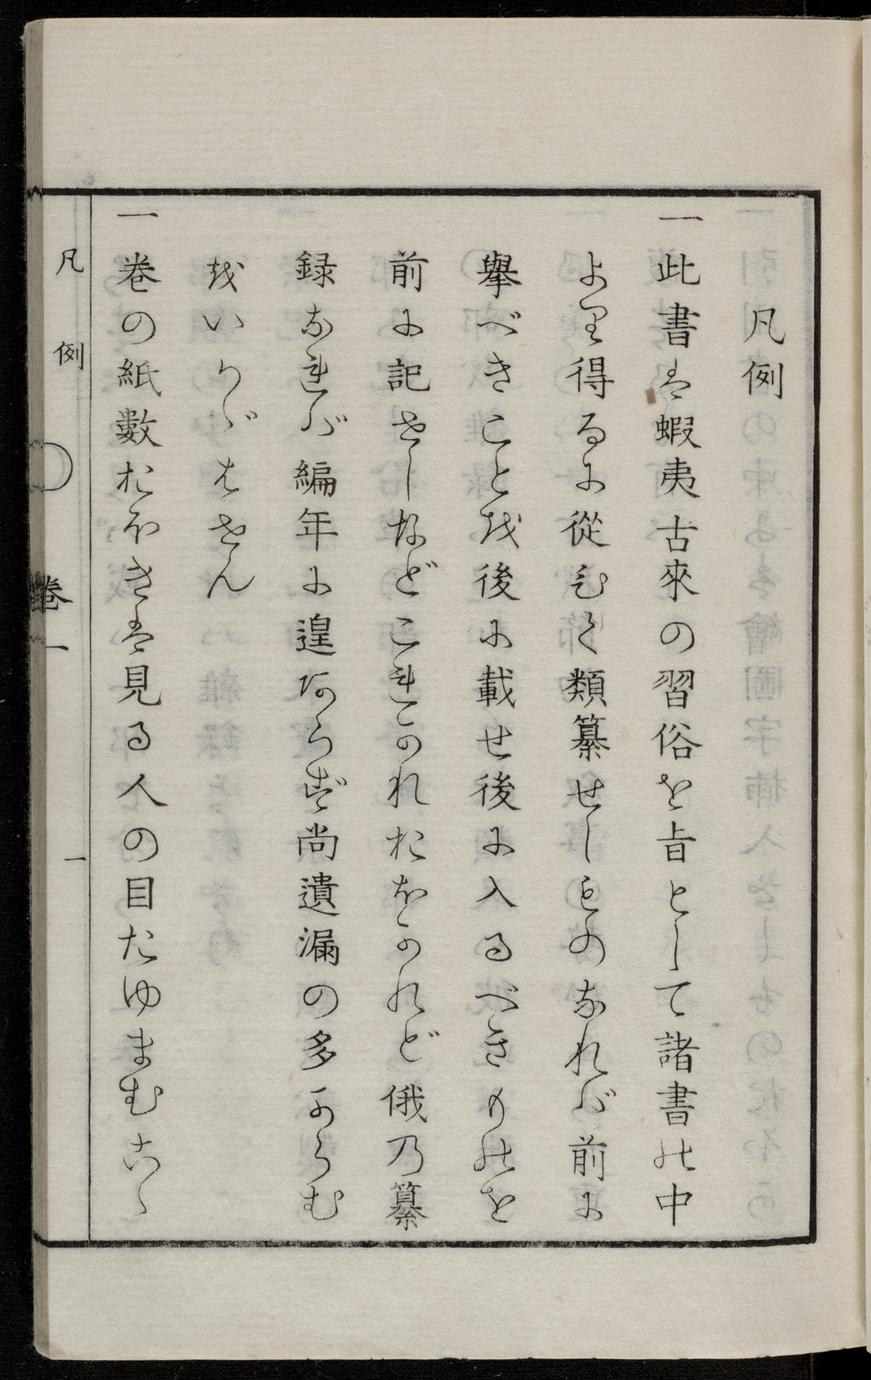 凡例
一此書は蝦夷古來の習俗を旨として諸書の中
より得るに從ひて類纂せしものなれバ前に
擧べきことを後に載せ後に入るべきものを
前に記せしなどこれかれおほかれど俄乃纂
録なれバ編年に遑あらず尚遺漏の多からむ
をいかゞはせん
一巻の紙數おほきは見る人の目たゆまむこゝ
凡例
巻一
一